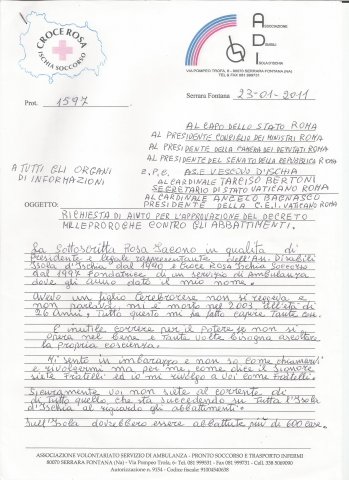 CROCE ROSA
ISCHIA SOCCORSO
ASSOCIAZIONE
DISABILI
ISOLA D'ISCHIA
A D I
VIA POMPEO TROFA, 6 - 80070 SERRARA FONTANA (NA)
TEL. & FAX 081 999731
Prot. 1597
Serrara Fontana 23-01-2011
AL CAPO DELLO STATO ROMA
AL PRESIDENTE CONSIGLIO DEI MINISTRI ROMA
AL PRESIDENTE DELLA CAMERA DEI DEPUTATI ROMA
AL PRESIDENTE DEL SENATO DELLA REPUBBLICA ROMA
E.P.C. A S.E VESCOVO D'ISCHIA
A TUTTI GLI ORGANI
DI INFORMAZIONI
AL CARDINALE TARCISO BERTONI
SEGRETARIO DI STATO VATICANO ROMA
AL CARDINALE ANGELO BAGNASCO
PRESIDENTE DELLA C.E.I VATICANO ROMA
OGGETTO: RICHIESTA DI AIUTO PER L'APPROVAZIONE DEL DECRETO
MILLEPROROGHE CONTRO GLI ABBATTIMENTI.
La Sottoscritta Rosa Iacono in qualità di
Presidente e legale rappresentante dell'Ass. Disabili
Isola d'Ischia dal 1990 e Croce Rosa Ischia Soccorso
dal 1997 Fondatrice di un servizio di Ambulanza
dove gli anno dato il mio nome.
Avevo un figlio cerebroleso non si reggeva e
non parlava, mi è morto nel 2003 all'età di
26 anni. Tutto questo mi ha fatto capire tante cose.
È inutile correre per il Potere se non si
opera nel bene e tante volte bisogna ascoltare
la propria coscienza.
Mi sento in imbarazzo e non so come chiamarvi
e rivolgermi ma per me, come dice il Signore
siete Fratelli ed io mi rivolgo a voi come Fratelli.
Sicuramente voi non siete al corrente di
di tutto quello che sta succedendo su tutta l'Isola
d'Ischia al riguardo gli abbattimenti.
Sull'Isola dovrebbero essere abbattute più di 600 case.
ASSOCIAZIONE VOLONTARIATO SERVIZIO DI AMBULANZA - PRONTO SOCCORSO E TRASPORTO INFERMI
80070 SERRARA FONTANA (Na) - Via Pompeo Trofa, 6 - Tel. 081 999331 - Fax 081 999731 - Cell. 338 5069090
Autorizzazione n. 9154 - Codice fiscale: 91004540638